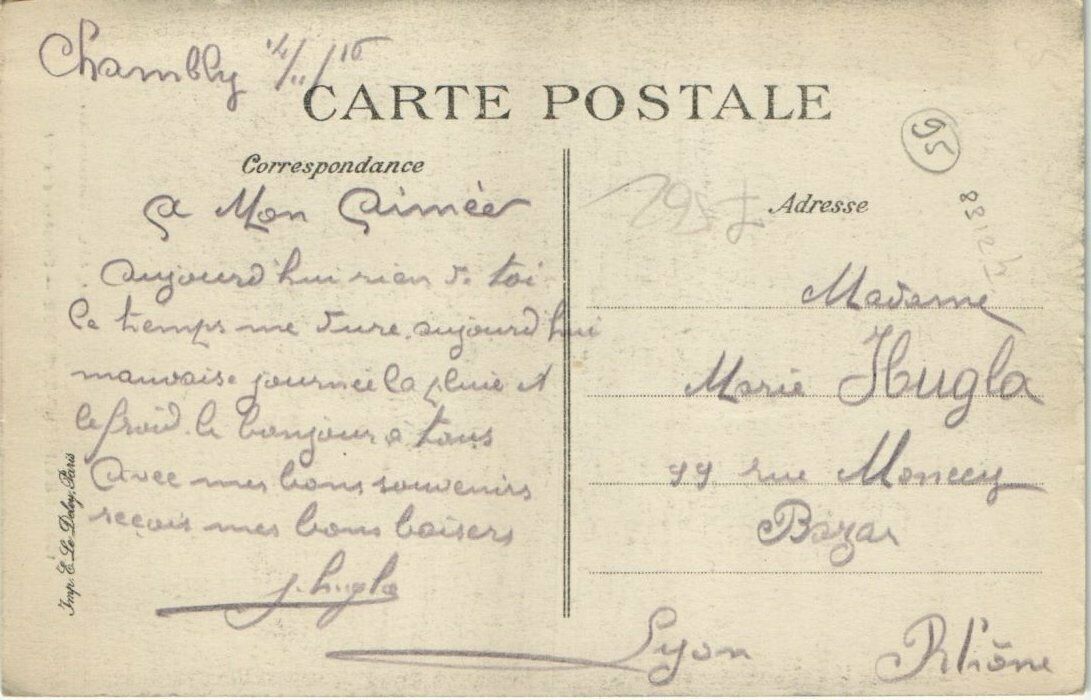 Chambly 14/11/16
CARTE POSTALE
95
Correspondance
a Mon Aimée
aujourd'hui rien de toi
le temps me dure aujourd'hui
mauvaise journée la pluie et
le froid. le bonjour a tous
avec mes bons souvenirs
reçois mes bons baisers
J. Hugla
Imp. E. Le Deley, Paris
Adresse
Madame
Marie Hugla
99 rue Moncey
Bazar
Lyon Rhône